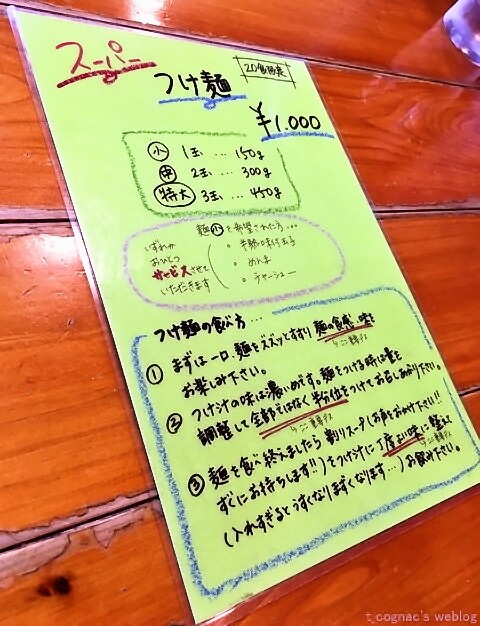 スーパー
つけ麺
20食限定
¥1,000
小 1玉 … 150g
中 2玉 … 300g
特大 3玉 … 450g
麺小を希望された方…
いずれか
おひとつ
サービスさせて
いただきます
・半熟味付玉子
・めんま
・チャーシュー
つけ麺の食べ方…
① まずは一口、麺をズズッとすすり麺の食感、味を
お楽しみ下さい。
ココ重要デス
② つけ汁の味は濃いめです。麺をつける時は量を
調整して全部ではなく半分位をつけてお召しあがり下さい。
ココ重要デス
③ 麺を食べ終えましたら割りスープ(お声をおかけ下さい!!
すぐにお持ちします!!)をつけ汁に丁度よい味に整え
ココ重要デス
(入れすぎるとうすくなりまずくなります…)お飲み下さい。
t_cognac's weblog